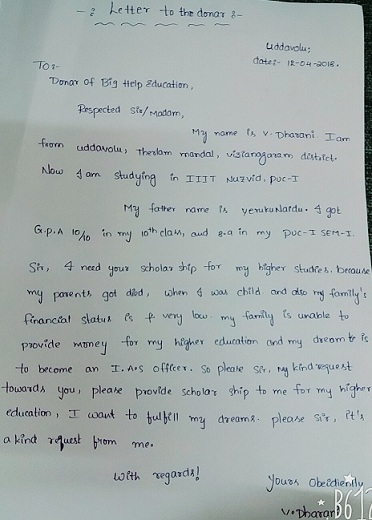 -: Letter to the donar :-
Uddavolu;
date:- 12-04-2018.
TO:-
Donar of Big Help Education,
Respected Sir/Madam,
My name is V. Dharani. I am
from uddavolu, Therlam mandal, vizianagaram district.
Now I am studying in IIIT Nuzvid. PUC-I
My father name is yerukunaidu. I got
G.P.A 10/10 in my 10th class, and 8.9 in my PUC-I SEM-I.
Sir, I need your scholar ship for my higher studies. because
my parents got died, when I was child. and also my family's
financial status is very low. my family is unable to
provide money for my higher education and my dream is
to become an I.A.S officer. So please Sir, my kind request
towards you, please provide scholar ship to me for my higher
education, I want to fulfill my dreams. please Sir, it's
a kind request from me.
With regards!
Yours Obeidiently
V. Dharani
B612